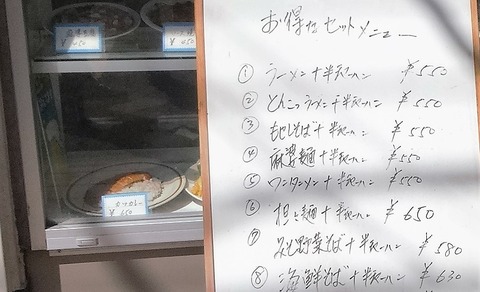 お得なセットメニュー
① ラーメン+半チャーハン ¥550
② とんこつラーメン+半チャーハン ¥550
③ もやしそば+半チャーハン ¥550
④ 麻婆麺+半チャーハン ¥550
⑤ ワンタンメン+半チャーハン ¥550
⑥ 担々麺+半チャーハン ¥650
⑦ 野菜そば+半チャーハン ¥580
⑧ 海鮮そば+半チャーハン ¥630
カツカレー
¥650